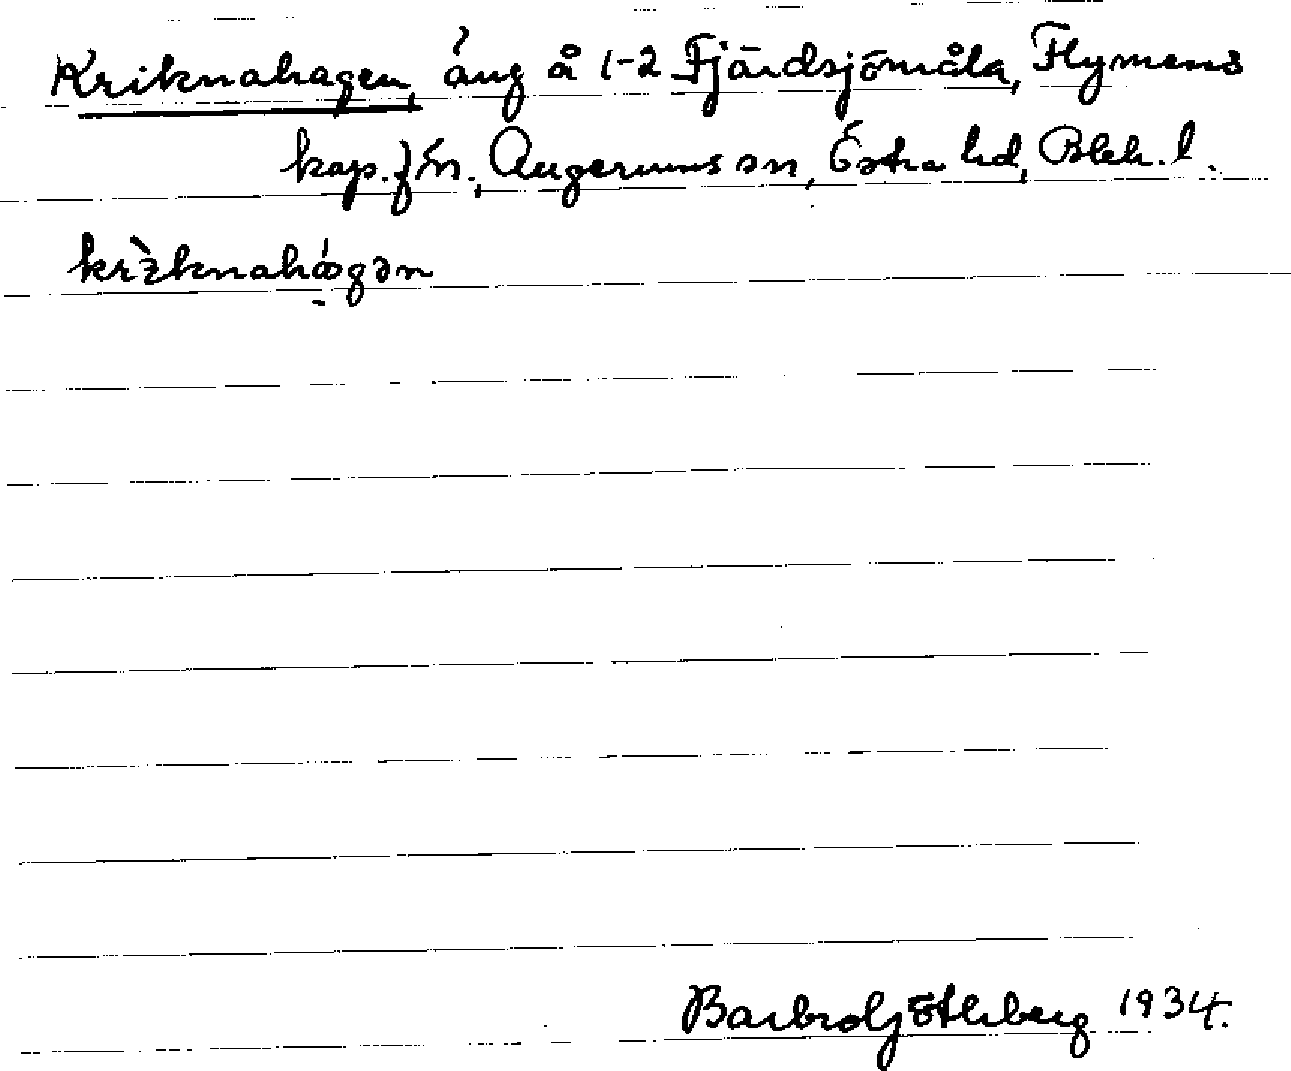 Kriknahagen, äng å 1-2 Fjärdsjömåla, Flymens
kap. fm., Augerums sn, Östra hd, Blek. l.
krìknahágən
Barbro Götherberg 1934.